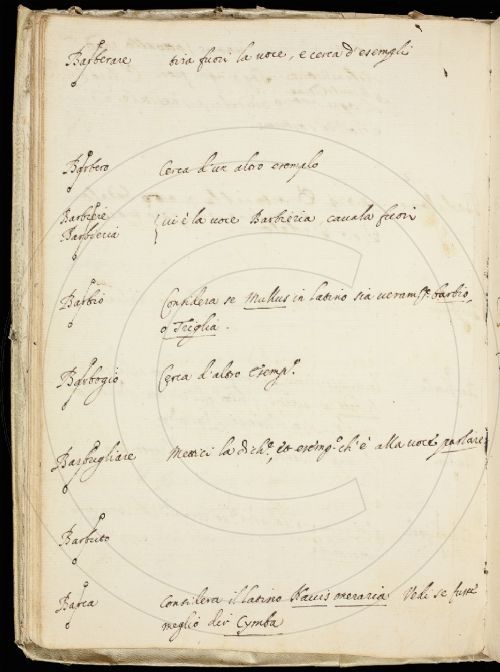 Barberare tira fuori la voce, e cerca d'esempli
Barbero Cerca d'un altro esemplo
Barbiere
Barbieria } vi è la voce Barbieria, cavala fuori
Barbio Considera se Mullus in latino sia veram.te barbio,
o Triglia.
Barbogio Cerca d'altro esemp.o
Barbugliare Mettici la dich.e, et esemp.o ch'è alla voce parlare
Barbuto
Barca Considera il latino Navis oneraria Vedi se fusse
meglio dir Cymba